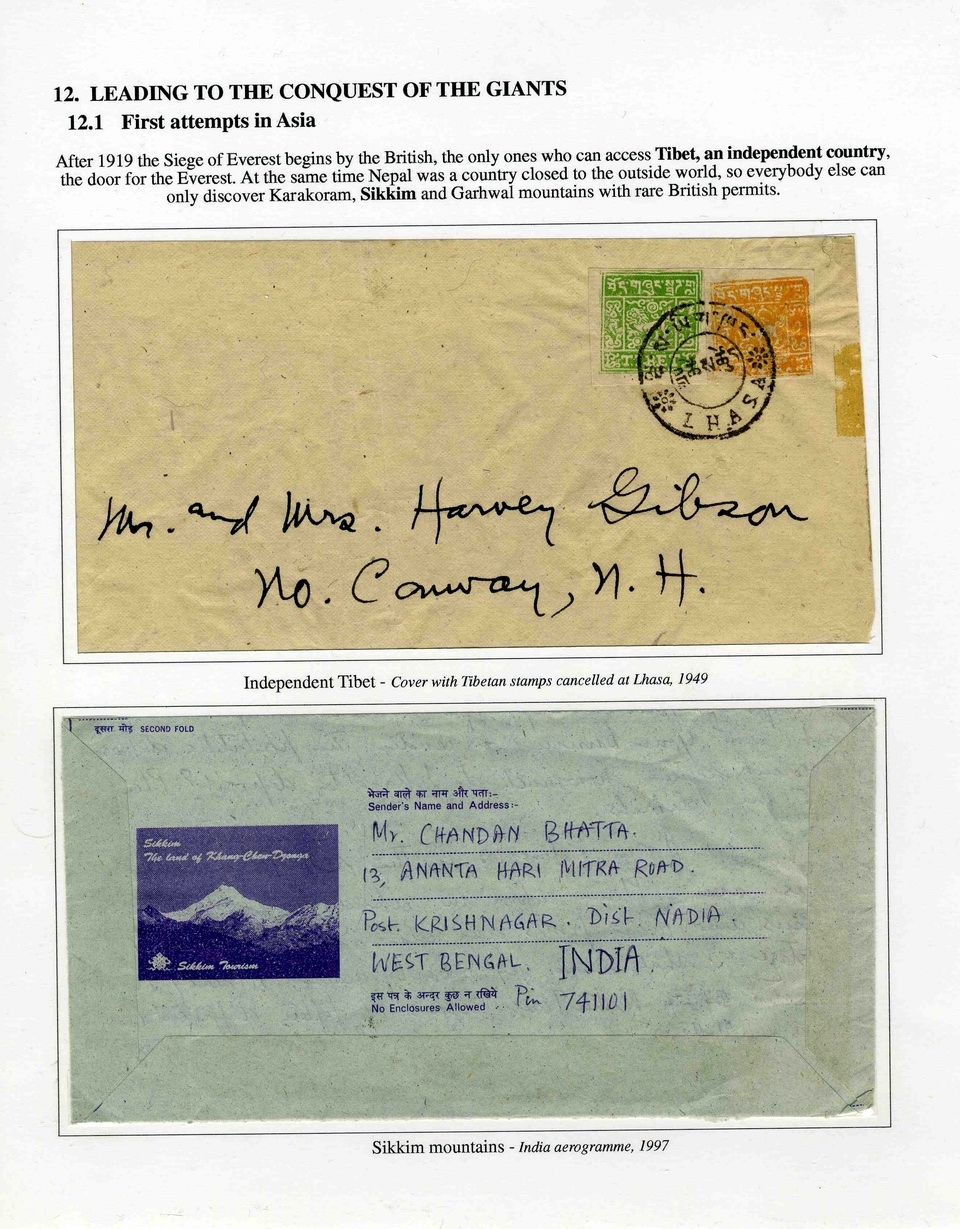 12. LEADING TO THE CONQUEST OF THE GIANTS
12.1 First attempts in Asia
After 1919 the Siege of Everest begins by the British, the only ones who can access Tibet, an independent country,
the door for the Everest. At the same time Nepal was a country closed to the outside world, so everybody else can
only discover Karakoram, Sikkim and Garhwal mountains with rare British permits.
LHASA
Mr. and Mrs. Harvey Gibson
No. Conway, N. H.
Independent Tibet - Cover with Tibetan stamps cancelled at Lhasa, 1949
दूसरा मोड़ SECOND FOLD
भेजने वाले का नाम और पता:-
Sender's Name and Address:-
Mr. CHANDAN BHATTA.
13, ANANTA HARI MITRA ROAD.
Post. KRISHNAGAR. Dist. NADIA.
WEST BENGAL. INDIA.
इस पत्र के अन्दर कुछ न रखिये Pin 741101
No Enclosures Allowed
Sikkim
The land of Khang-Chen-Dzonga
Sikkim Tourism
Sikkim mountains - India aerogramme, 1997